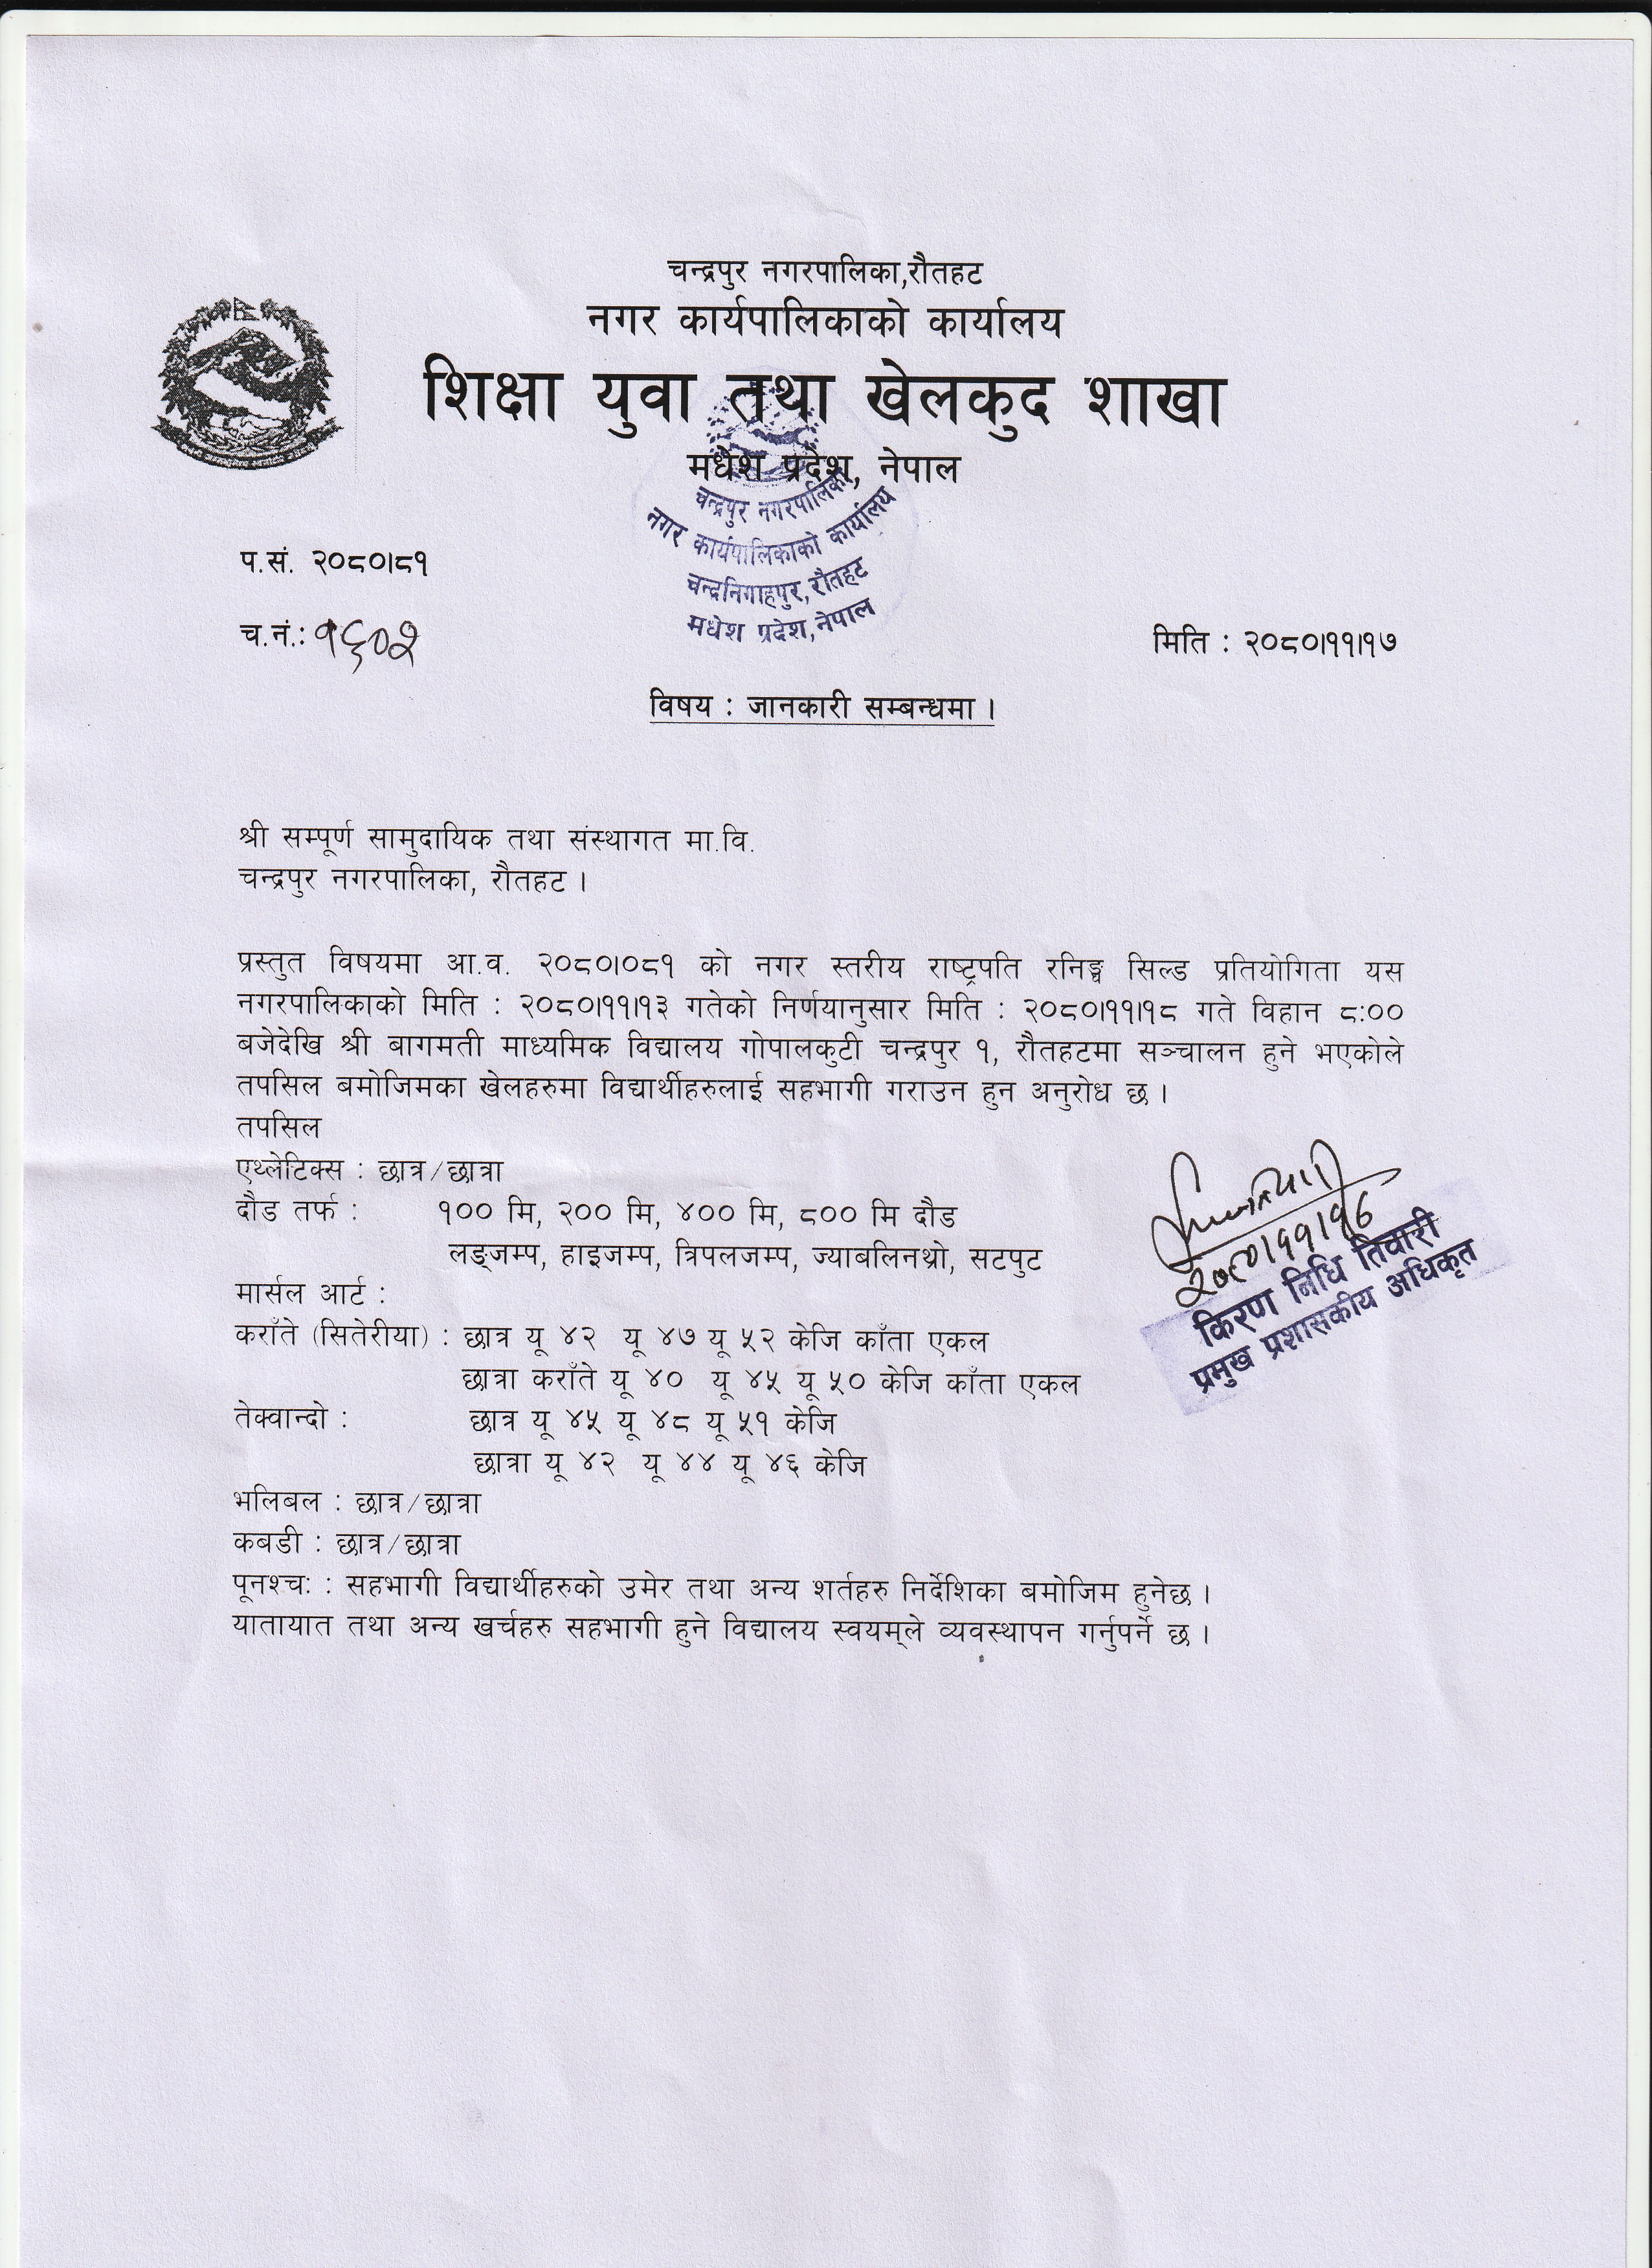 चन्द्रपुर नगरपालिका,रौतहट
नगर कार्यपालिकाको कार्यालय
शिक्षा युवा तथा खेलकुद शाखा
मधेश प्रदेश, नेपाल
चन्द्रपुर नगरपालिका
नगर कार्यपालिकाको कार्यालय
चन्द्रनिगाहपुर,रौतहट
मधेश प्रदेश,नेपाल
प.सं. २०८०।८१
च.नं.: १६०२
मिति : २०८०।११।१७
विषय : जानकारी सम्बन्धमा ।
श्री सम्पूर्ण सामुदायिक तथा संस्थागत मा.वि.
चन्द्रपुर नगरपालिका, रौतहट ।
प्रस्तुत विषयमा आ.व. २०८०।०८१ को नगर स्तरीय राष्ट्रपति रनिङ्ग सिल्ड प्रतियोगिता यस
नगरपालिकाको मिति : २०८०।११।१३ गतेको निर्णयानुसार मिति : २०८०।११।१८ गते विहान ८:००
बजेदेखि श्री बागमती माध्यमिक विद्यालय गोपालकुटी चन्द्रपुर १, रौतहटमा सञ्चालन हुने भएकोले
तपसिल बमोजिमका खेलहरुमा विद्यार्थीहरुलाई सहभागी गराउन हुन अनुरोध छ ।
तपसिल
एथ्लेटिक्स : छात्र/छात्रा
दौड तर्फ : १०० मि, २०० मि, ४०० मि, ८०० मि दौड
लङ्जम्प, हाइजम्प, त्रिपलजम्प, ज्याबलिनथ्रो, सटपुट
मार्सल आर्ट :
कराँते (सितेरीया) : छात्र यू ४२ यू ४७ यू ५२ केजि काँता एकल
छात्रा कराँते यू ४० यू ४५ यू ५० केजि काँता एकल
तेक्वान्दो : छात्र यू ४५ यू ४८ यू ५१ केजि
छात्रा यू ४२ यू ४४ यू ४६ केजि
भलिबल : छात्र/छात्रा
कबडी : छात्र/छात्रा
पूनश्चः : सहभागी विद्यार्थीहरुको उमेर तथा अन्य शर्तहरु निर्देशिका बमोजिम हुनेछ ।
यातायात तथा अन्य खर्चहरु सहभागी हुने विद्यालय स्वयम्ले व्यवस्थापन गर्नुपर्ने छ ।
किरण निधि तिवारी
प्रमुख प्रशासकीय अधिकृत